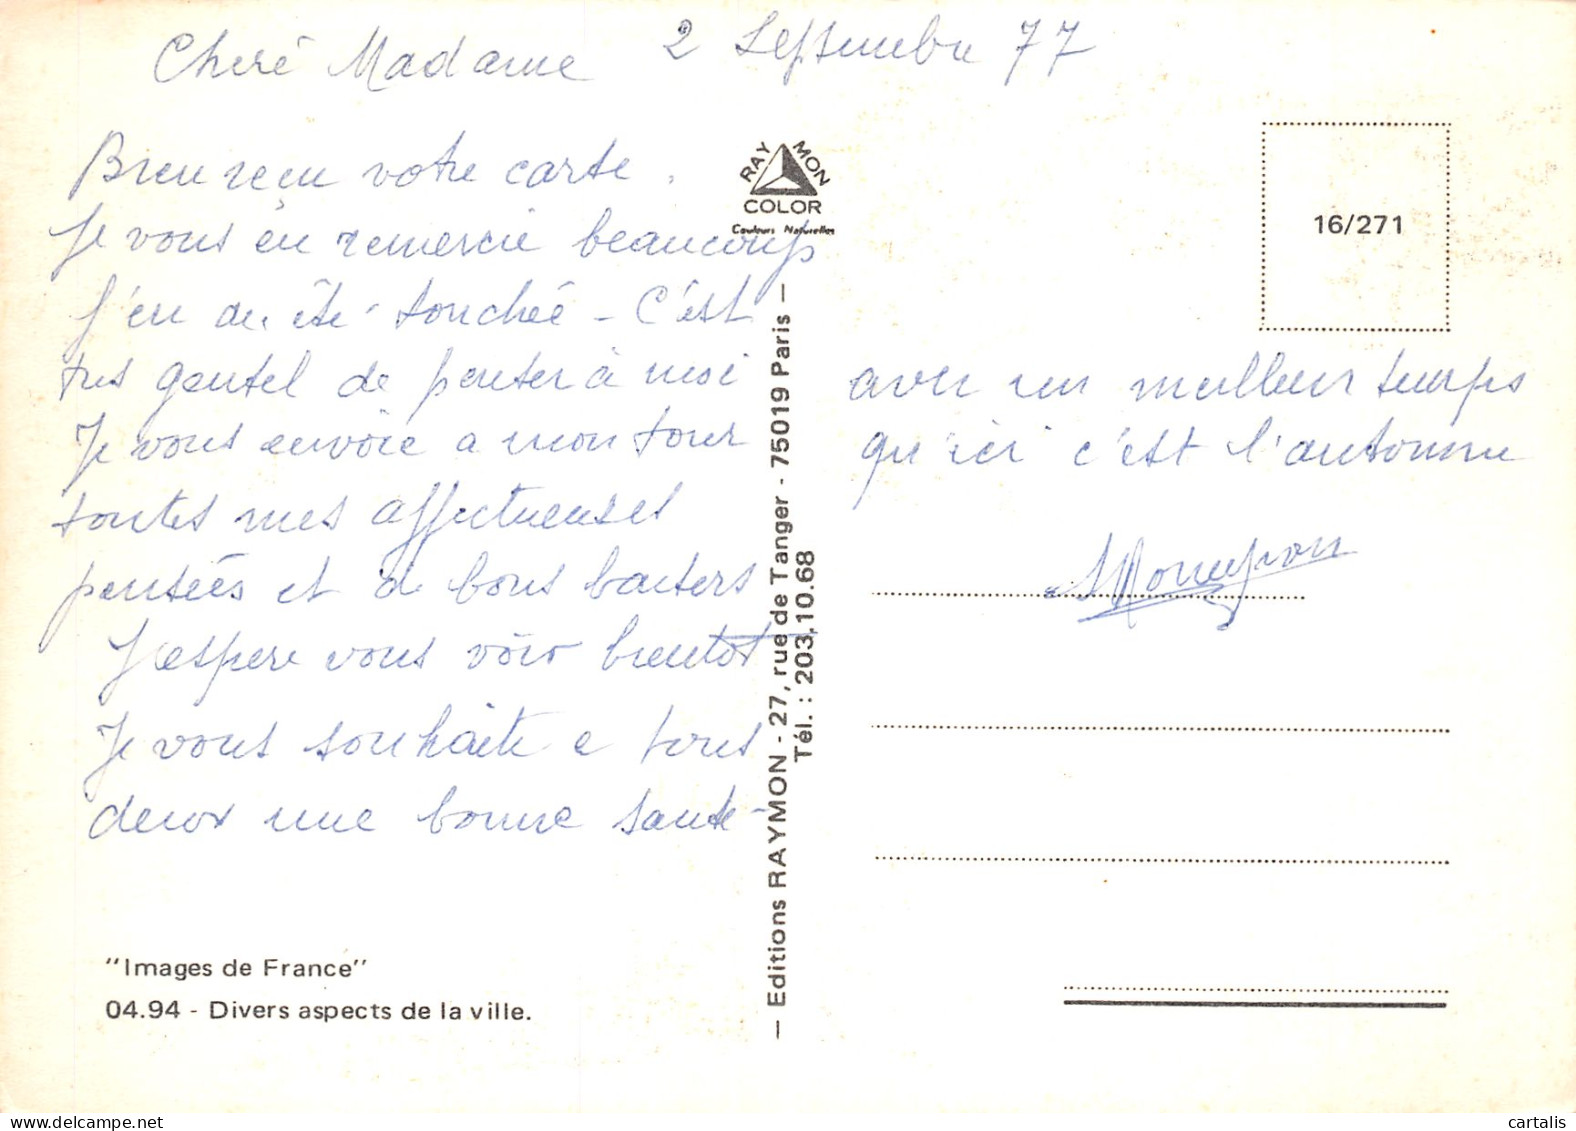 Cheré Madame 2 Septembre 77
Bien reçu votre carte.
Je vous en remercie beaucoup
J'en ai été touchée - C'est
très gentil de penser à moi
Je vous envoie a mon tour
toutes mes affectueuses
pensées et de bons baisers
J'espère vous voir bientôt
Je vous souhaite a tous
deux une bonne santé -
avec un meilleur temps
qu'ici c'est l'automne
RAYMON
COLOR
Couleurs Naturelles
16/271
— Editions RAYMON - 27, rue de Tanger - 75019 Paris —
Tél. : 203.10.68
"Images de France"
04.94 - Divers aspects de la ville.
cartalis